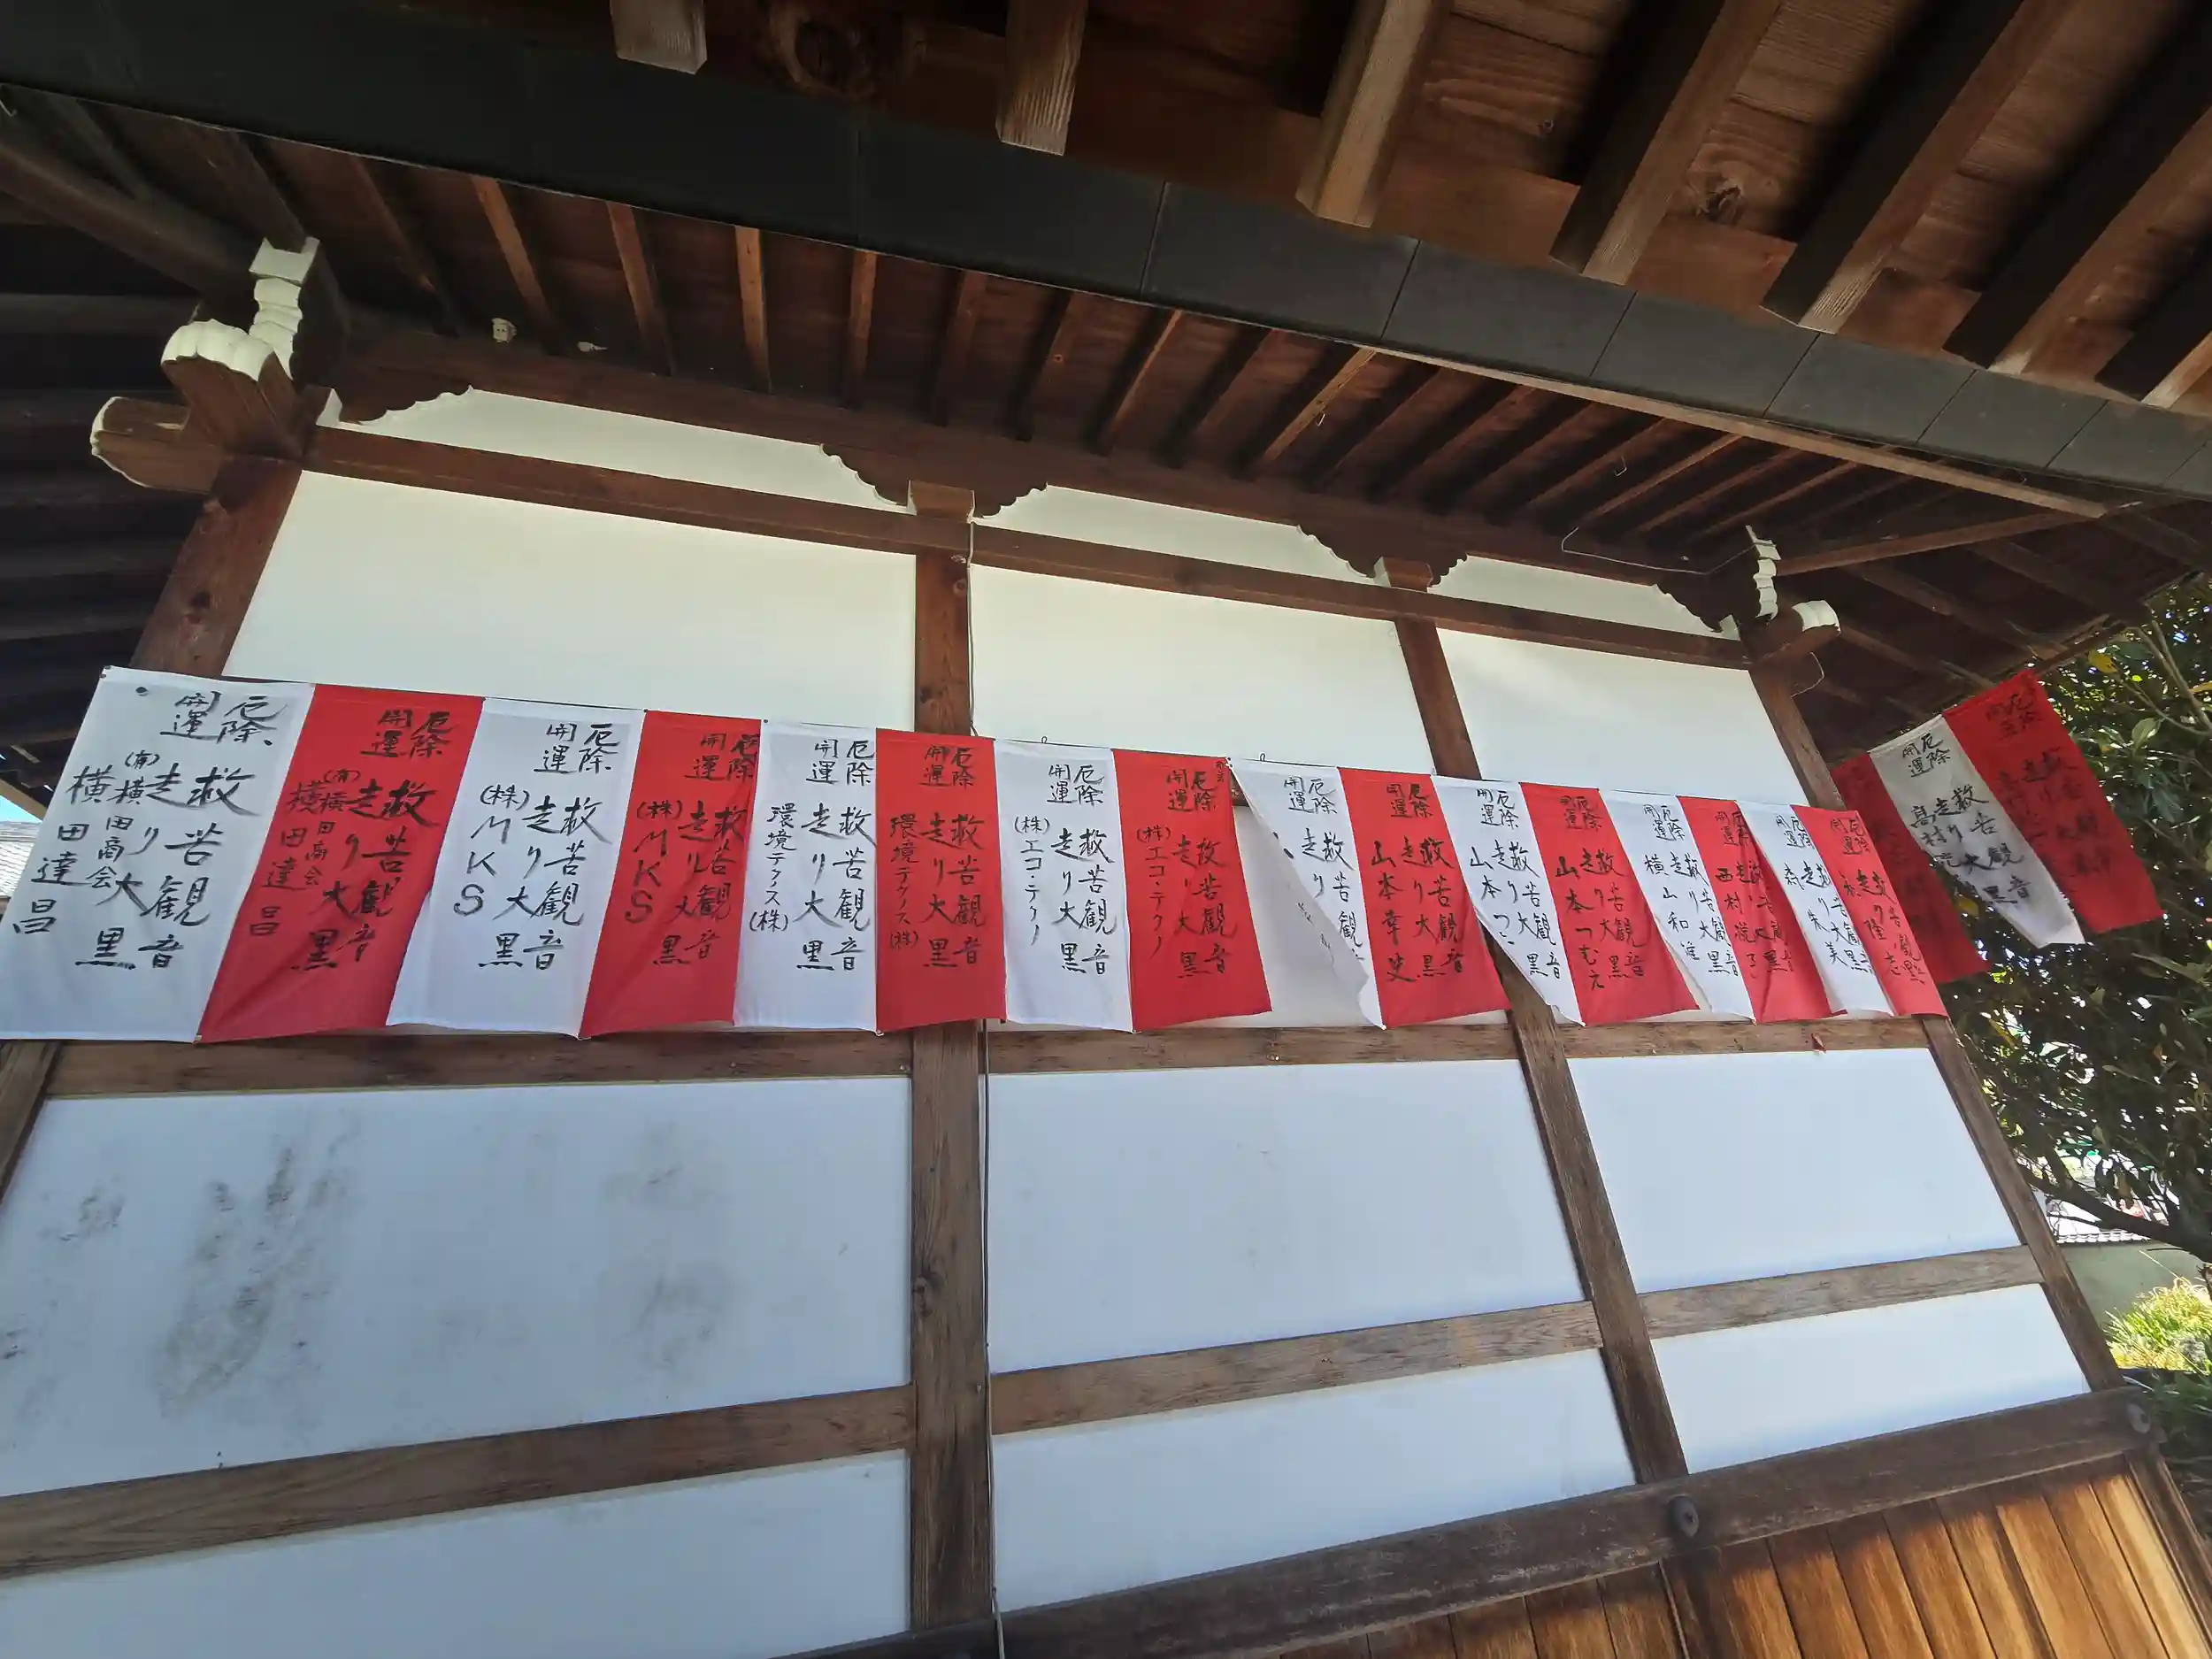 厄除
開運
救苦観音
走り大黒
(有)横田商会
横田達昌
厄除
開運
救苦観音
走り大黒
(有)横田商会
横田達昌
厄除
開運
救苦観音
走り大黒
(株)MKS
厄除
開運
救苦観音
走り大黒
(株)MKS
厄除
開運
救苦観音
走り大黒
環境テクノス(株)
厄除
開運
救苦観音
走り大黒
環境テクノス(株)
厄除
開運
救苦観音
走り大黒
(株)エコ・テクノ
厄除
開運
救苦観音
走り大黒
(株)エコ・テクノ
厄除
開運
救苦観音
走り
厄除
開運
救苦観音
走り大黒
山本幸史
厄除
開運
救苦観音
走り大黒
山本つ
厄除
開運
救苦観音
走り大黒
山本つむえ
厄除
開運
救苦観音
走り大黒
横山和雄
厄除
開運
救苦観音
走り大黒
西村
厄除
開運
救苦観音
走り大黒
朱美
厄除
開運
救苦観音
走り大黒
厄除
開運
救苦観音
走り大黒
高村
厄除
開運